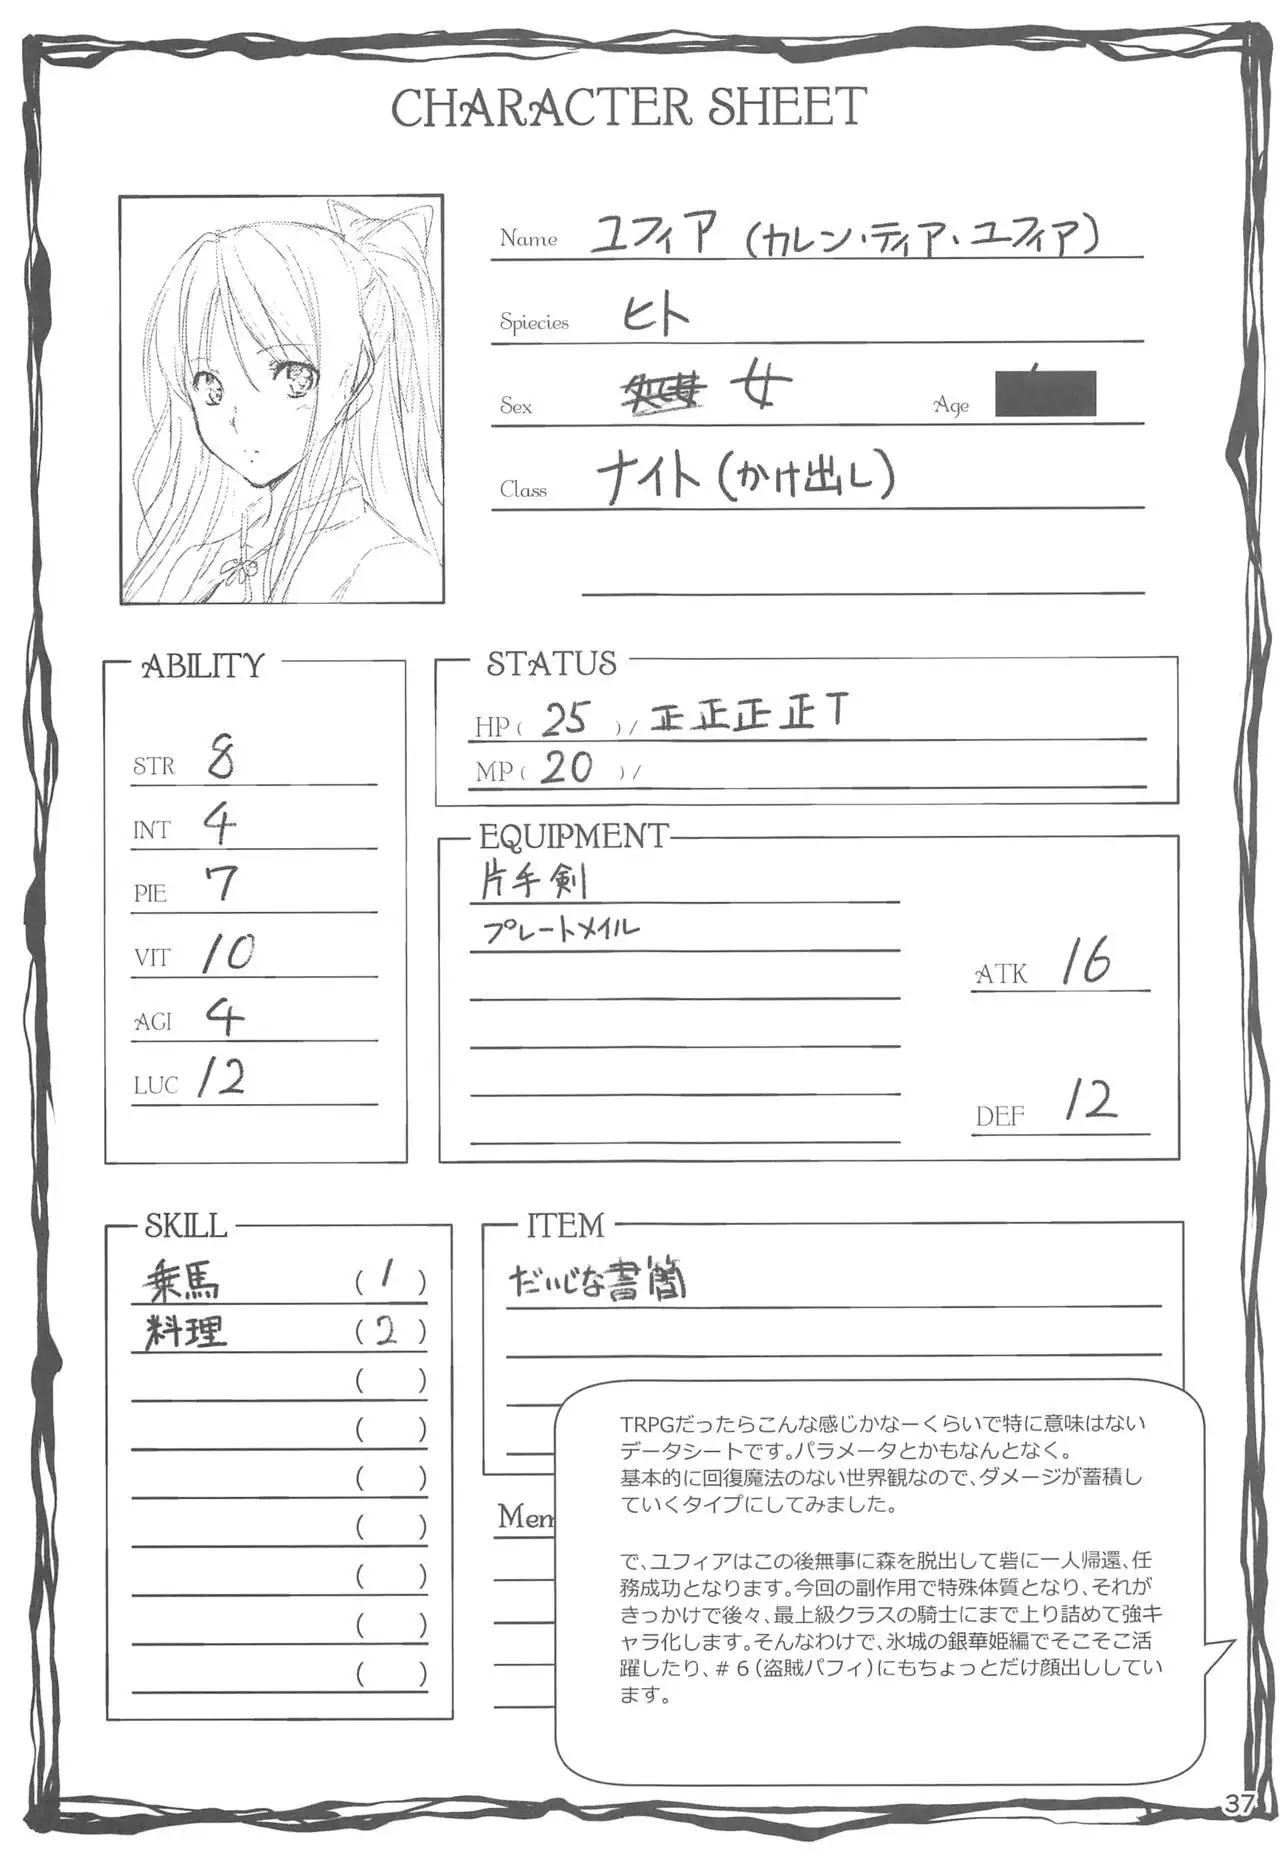 CHARACTER SHEET
Name ユフィア (カレン・ティア・ユフィア)
Spiecies ヒト
Sex 処女 女 Age
Class ナイト(かけ出し)
ABILITY
STR 8
INT 4
PIE 7
VIT 10
AGI 4
LUC 12
STATUS
HP( 25 )/ 正正正正T
MP( 20 )/
EQUIPMENT
片手剣
プレートメイル
ATK 16
DEF 12
SKILL
乗馬 ( 1 )
料理 ( 2 )
( )
( )
( )
( )
( )
( )
( )
ITEM
だいじな書簡
Mem
TRPGだったらこんな感じかなーくらいで特に意味はない
データシートです。パラメータとかもなんとなく。
基本的に回復魔法のない世界観なので、ダメージが蓄積し
ていくタイプにしてみました。
で、ユフィアはこの後無事に森を脱出して砦に一人帰還、任
務成功となります。今回の副作用で特殊体質となり、それが
きっかけで後々、最上級クラスの騎士にまで上り詰めて強キ
ャラ化します。そんなわけで、氷城の銀華姫編でそこそこ活
躍したり、＃６(盗賊パフィ)にもちょっとだけ顔出ししてい
ます。
37